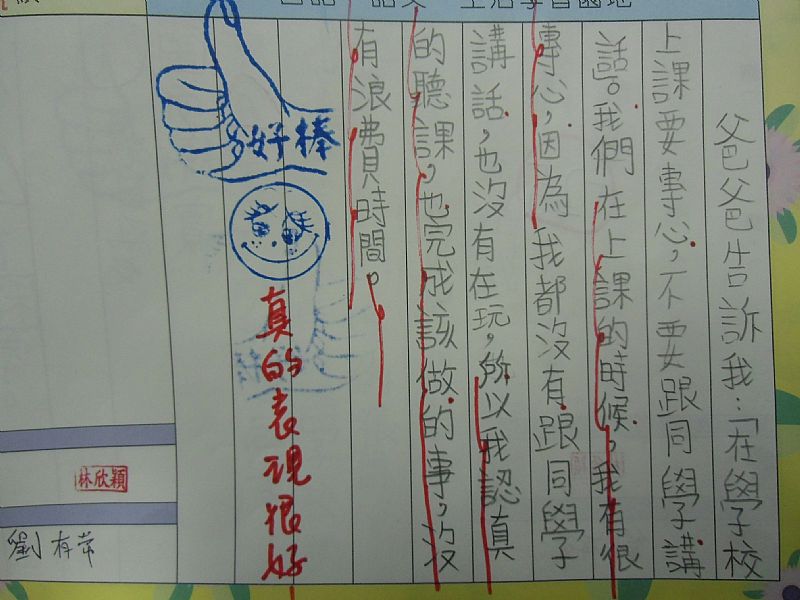 爸爸告訴我:「在學校
上課要專心,不要跟同學講
話。我們在上課的時候,我有很
專心,因為我都沒有跟同學
講話,也沒有在玩,所以我認真
的聽課,也完成該做的事,沒
有浪費時間。
好棒
真的表現很好
林欣穎